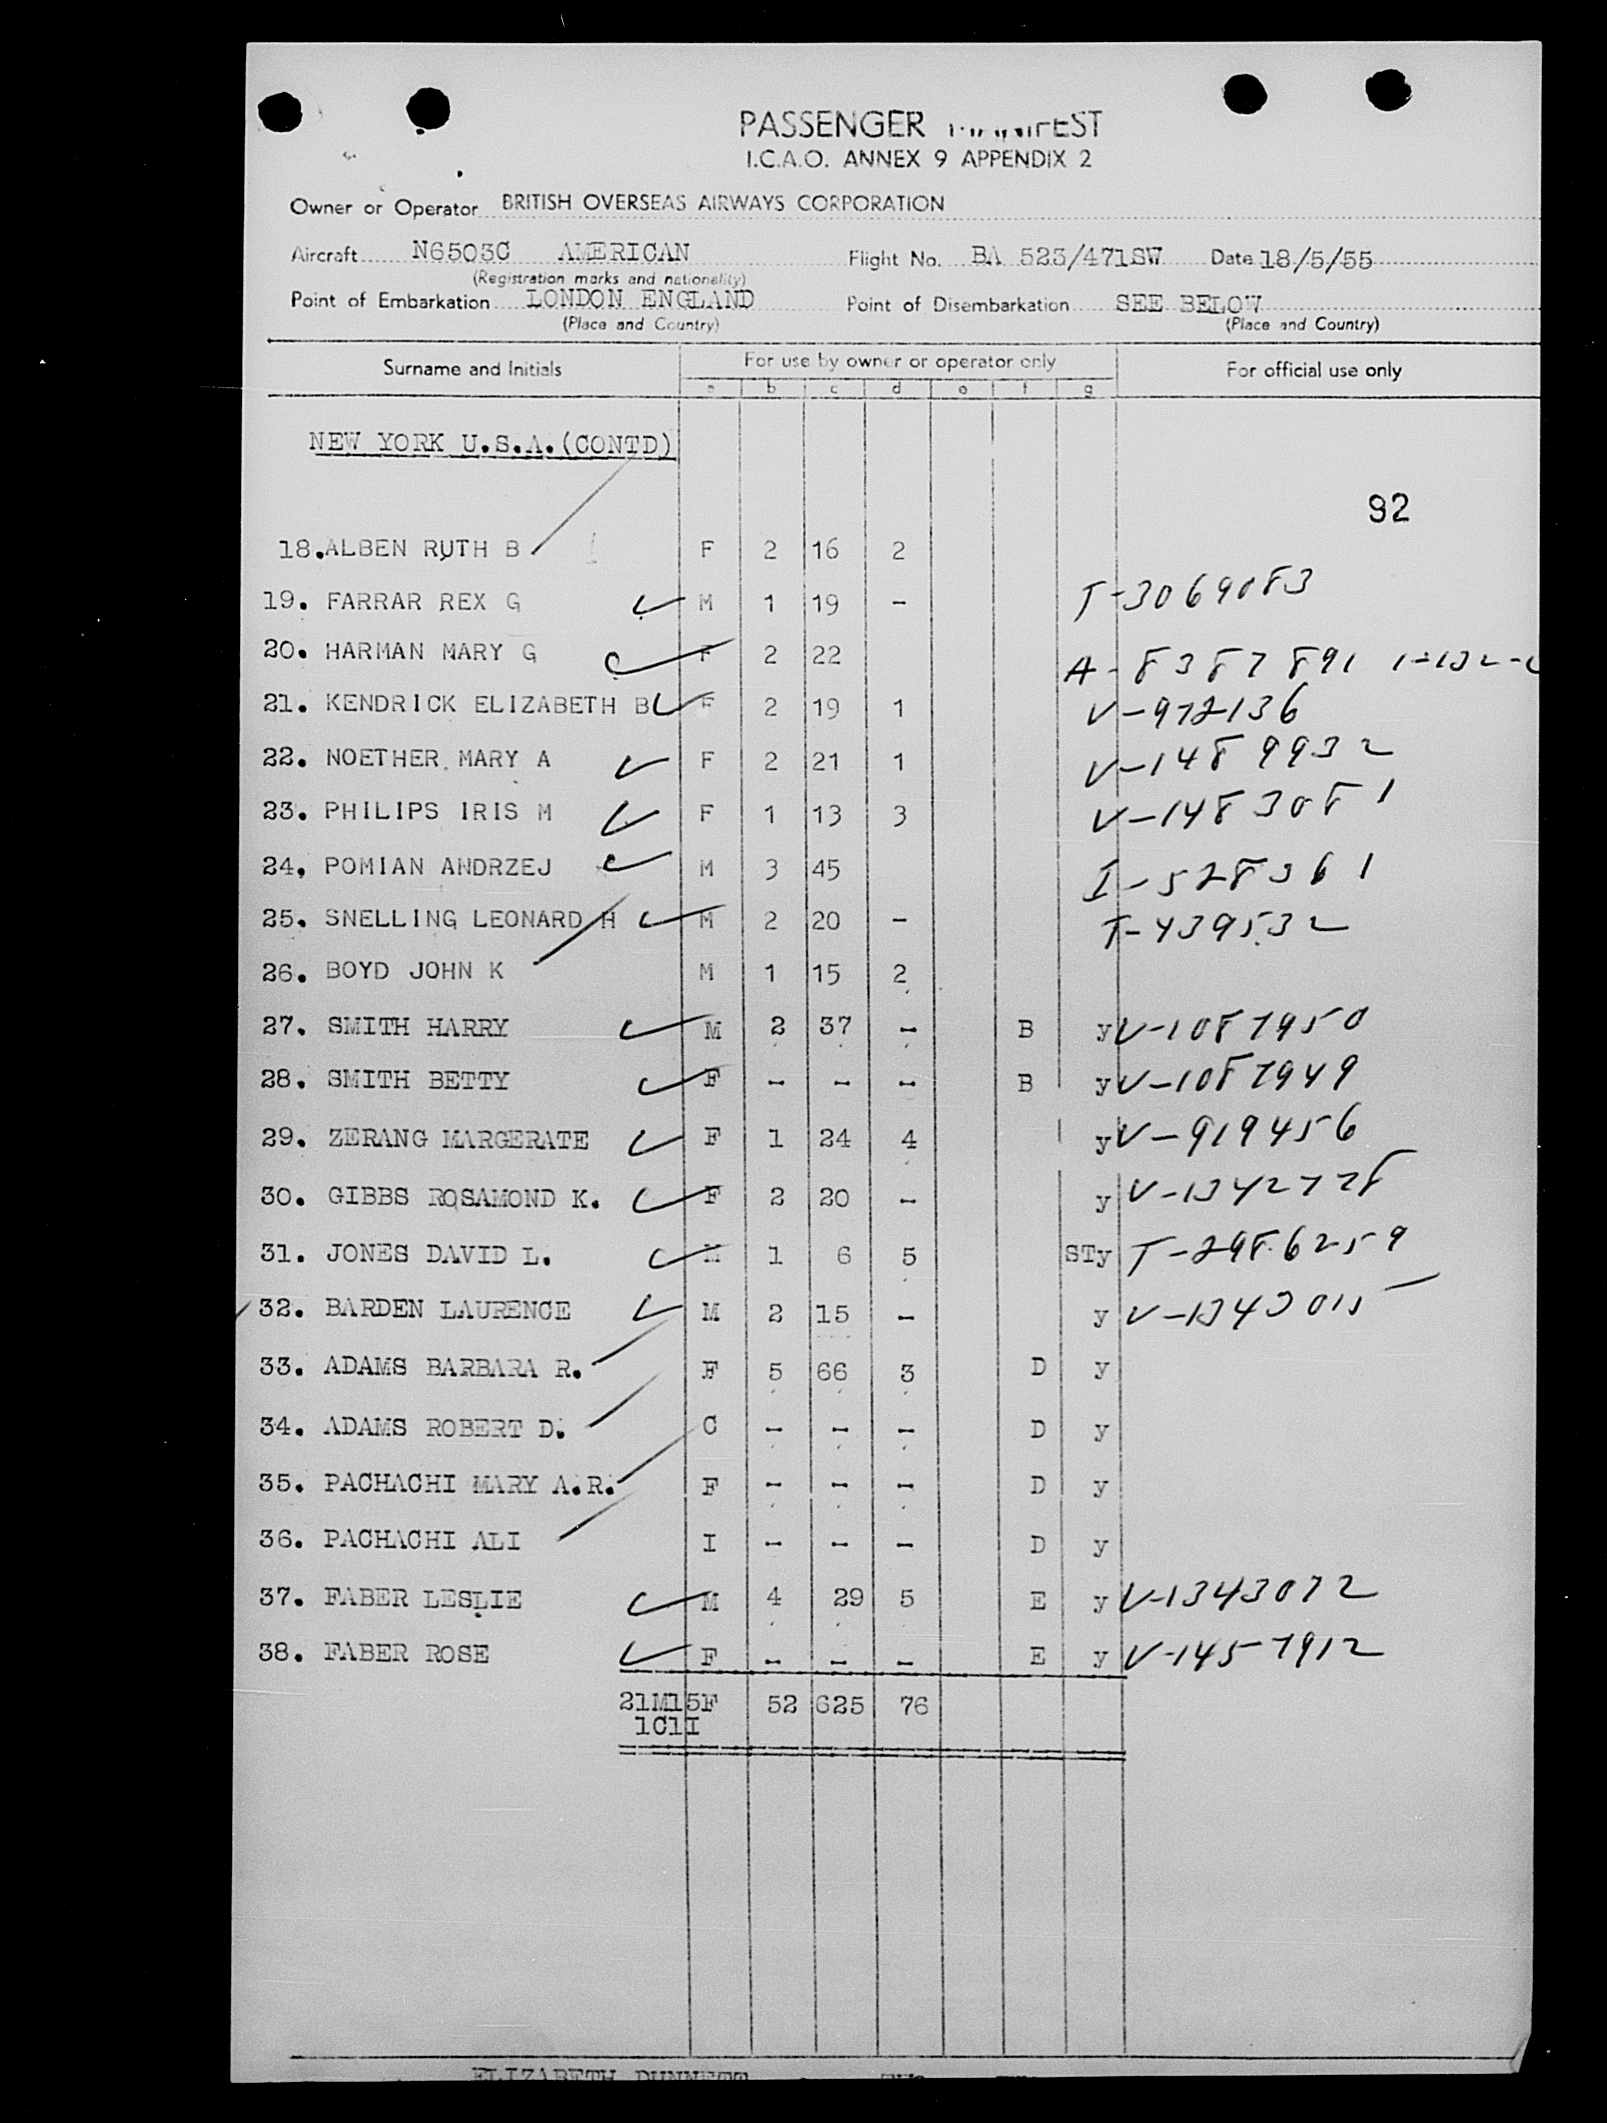 PASSENGER MANIFEST
I.C.A.O. ANNEX 9 APPENDIX 2
Owner or Operator BRITISH OVERSEAS AIRWAYS CORPORATION
Aircraft N6503C AMERICAN Flight No. BA 523/471SW Date 18/5/55
(Registration marks and nationality)
Point of Embarkation LONDON ENGLAND Point of Disembarkation SEE BELOW
(Place and Country) (Place and Country)
Surname and Initials For use by owner or operator only For official use only
a b c d e f g
NEW YORK U.S.A.(CONTD)
92
18.ALBEN RUTH B F 2 16 2
19. FARRAR REX G M 1 19 - T-3069083
20. HARMAN MARY G F 2 22 A-8387891
21. KENDRICK ELIZABETH B F 2 19 1 V-972136
22. NOETHER MARY A F 2 21 1 V-1489932
23. PHILIPS IRIS M F 1 13 3 V-1483081
24. POMIAN ANDRZEJ M 3 45 I-528361
25. SNELLING LEONARD H M 2 20 - T-439532
26. BOYD JOHN K M 1 15 2
27. SMITH HARRY M 2 37 - B y V-1087950
28. SMITH BETTY F - - - B y V-1087949
29. ZERANG MARGERATE F 1 24 4 y V-919456
30. GIBBS ROSAMOND K. F 2 20 - y V-1342728
31. JONES DAVID L. M 1 6 5 STy T-2986259
32. BARDEN LAURENCE M 2 15 - y V-1343015
33. ADAMS BARBARA R. F 5 66 3 D y
34. ADAMS ROBERT D. C - - - D y
35. PACHACHI MARY A.R. F - - - D y
36. PACHACHI ALI I - - - D y
37. FABER LESLIE M 4 29 5 E y V-1343072
38. FABER ROSE F - - - E y V-1457912
21M15F 52 625 76
1C1I
ELIZABETH DUNNETT